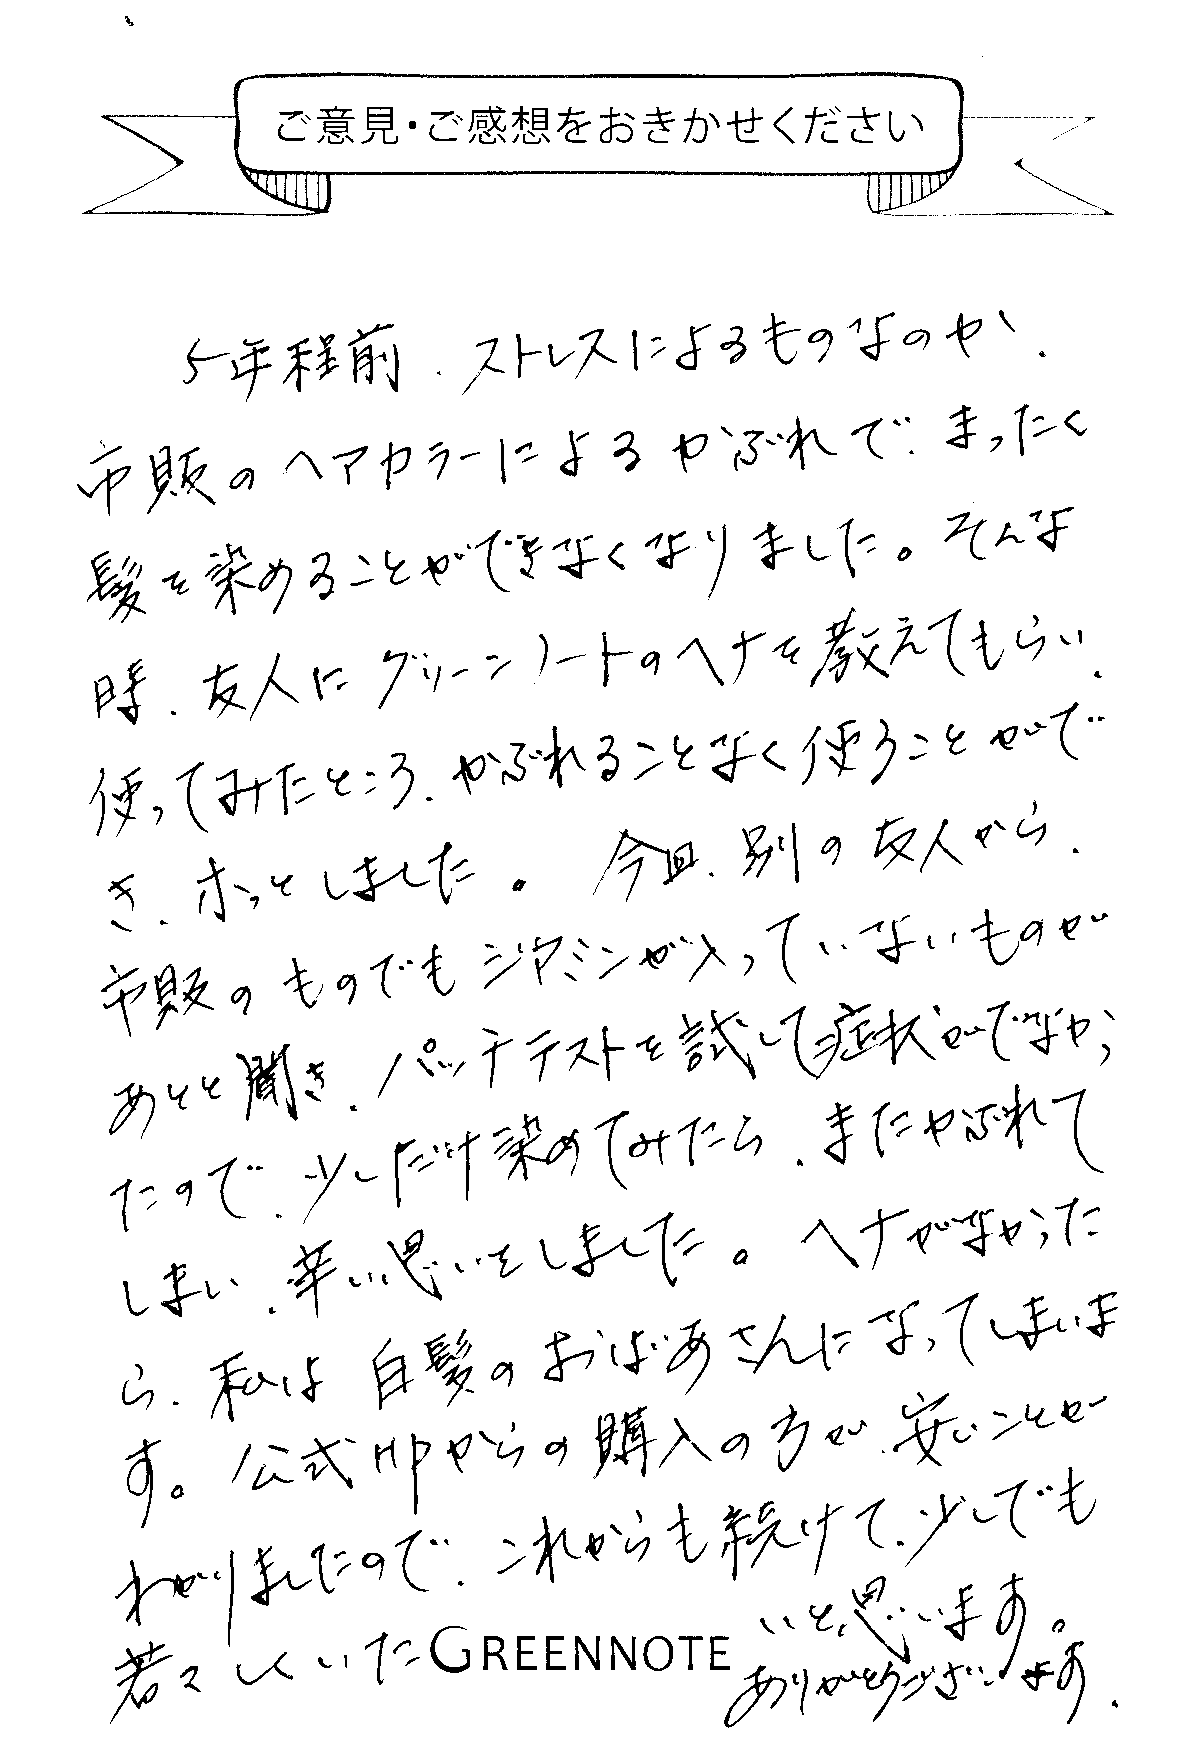 ご意見・ご感想をおきかせください
5年程前、ストレスによるものなのか、
市販のヘアカラーによるかぶれで、まったく
髪を染めることができなくなりました。そんな
時、友人にグリーンノートのヘナを教えてもらい、
使ってみたところ、かぶれることなく使うことがで
き、ホッとしました。今回、別の友人から、
市販のものでもジアミンが入っていないものが
あると聞き、パッチテストを試して症状がでなかっ
たので、少しだけ染めてみたら、またかぶれて
しまい、辛い思いをしました。ヘナがなかった
ら、私は白髪のおばあさんになってしまいま
す。公式HPからの購入の方が、安いことが
わかりましたので、これからも続けて、少しでも
若々しくいたいと思います。
GREENNOTE
ありがとうございます。